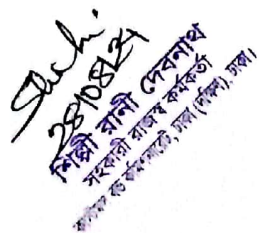 28/08/24
শিল্পী রাণী দেবনাথ
সহকারী রাজস্ব কর্মকর্তা
কাস্টমস বন্ড কমিশনারেট, ঢাকা (দক্ষিণ), ঢাকা।